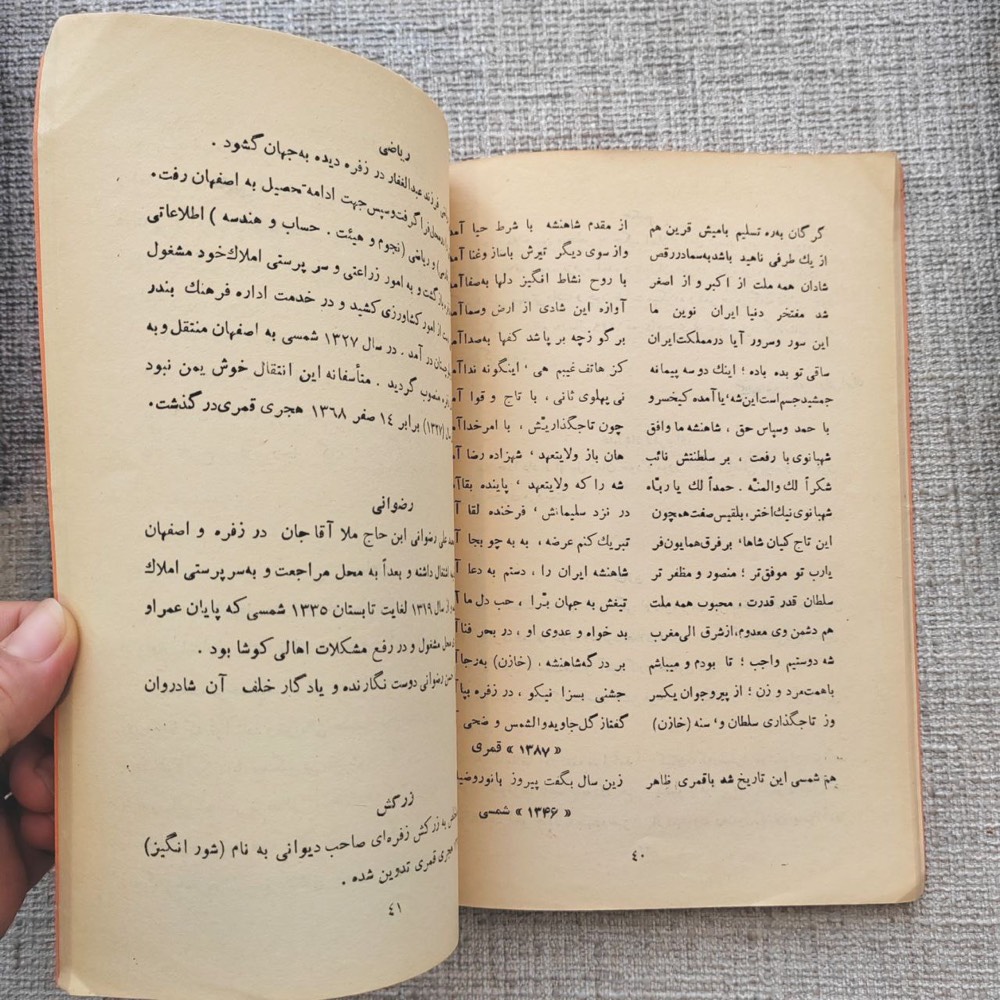 گرگان بهره تسلیم بامیش قرین هم از مقدم شاهنشه با شرط حیا آمد
از یك طرفی ناهید باشد بسما در رقص واز سوی دیگر تیرش باساز وغنا آمد
شادان همه ملت از اکبر و از اصغر با روح نشاط انگیز دلها بصفا آمد
شد مفتخر دنیا ایران نوین ما آوازه این شادی از ارض وسما آمد
این سور وسرور آیا درمملکت ایران بر گو زچه بر پا شد کفها بصدا آمد
ساقی تو بده باده ؛ اینك دو سه پیمانه کز هاتف غیبم هی ، اینگونه ندا آمد
جمشید جسم است این شه ، یا آمده کیخسرو نی پهلوی ثانی ، با تاج و قوا آمد
با حمد وسپاس حق ، شاهنشه ما وافق چون تاجگذاریش ، با امر خدا آمد
شهبانوی با رفعت ، بر سلطنتش نائب هان باز ولایتعهد ، شهزاده رضا آمد
شکراً لك والمنّه . حمداً لك یا ربّاه شه را که ولایتعهد ، پاینده بقا آمد
شهبانوی نیك اختر ، بلقیس صفت همچون در نزد سلیمانش ، فرخنده لقا آمد
این تاج کیان شاها ، بر فرق همایون فر تبریك کنم عرضه ، به به چو بجا آمد
یارب تو موفق تر ؛ منصور و مظفر تر شاهنشه ایران را ، دستم به دعا آمد
سلطان قدر قدرت ، محبوب همه ملت تیغش به جهان برّا ، حب دل ما آمد
هم دشمن وی معدوم ، از شرق الی مغرب بد خواه و عدوی او ، در بحر فنا آمد
شه دوستیم واجب ؛ تا بودم و میباشم بر در گه شاهنشه ، (خازن) به رجا آمد
باهمت مرد و زن ؛ از پیر و جوان یکسر جشنی بسزا نیکو ، در زفره بپا آمد
وز تاجگذاری سلطان و ، سنه (خازن) گفتاز گل جاوید و الشمس و ضحی آمد
« ۱۳۸۷ » قمری
هم شمسی این تاریخ شه باقمری ظاهر زین سال بگفت پیروز بانور و ضیا
« ۱۳۴۶ » شمسی
۴۰
ریاضی
فرزند عبدالغفار در زفره دیده به جهان گشود .
فرا گرفت وسپس جهت ادامه تحصیل به اصفهان رفت.
و ریاضی (نجوم و هیئت . حساب و هندسه ) اطلاعاتی
گشت و به امور زراعتی و سر پرستی املاك خود مشغول
از امور کشاورزی کشید و در خدمت اداره فرهنك بندر
در آمد . در سال ۱۳۲۷ شمسی به اصفهان منتقل و به
منصوب گردید . متأسفانه این انتقال خوش یمن نبود
(۱۳۲۷) برابر ۱۴ صفر ۱۳۶۸ هجری قمری در گذشت.
رضوانی
علی رضوانی ابن حاج ملا آقا جان در زفره و اصفهان
اشتغال داشته و بعداً به محل مراجعت و به سر پرستی املاك
از سال ۱۳۱۹ لغایت تابستان ۱۳۳۵ شمسی که پایان عمر او
محل مشغول و در رفع مشکلات اهالی کوشا بود .
رضوانی دوست نگارنده و یادگار خلف آن شادروان
زرکش
به زرکش زفره‌ای صاحب دیوانی به نام (شور انگیز)
هجری قمری تدوین شده .
۴۱